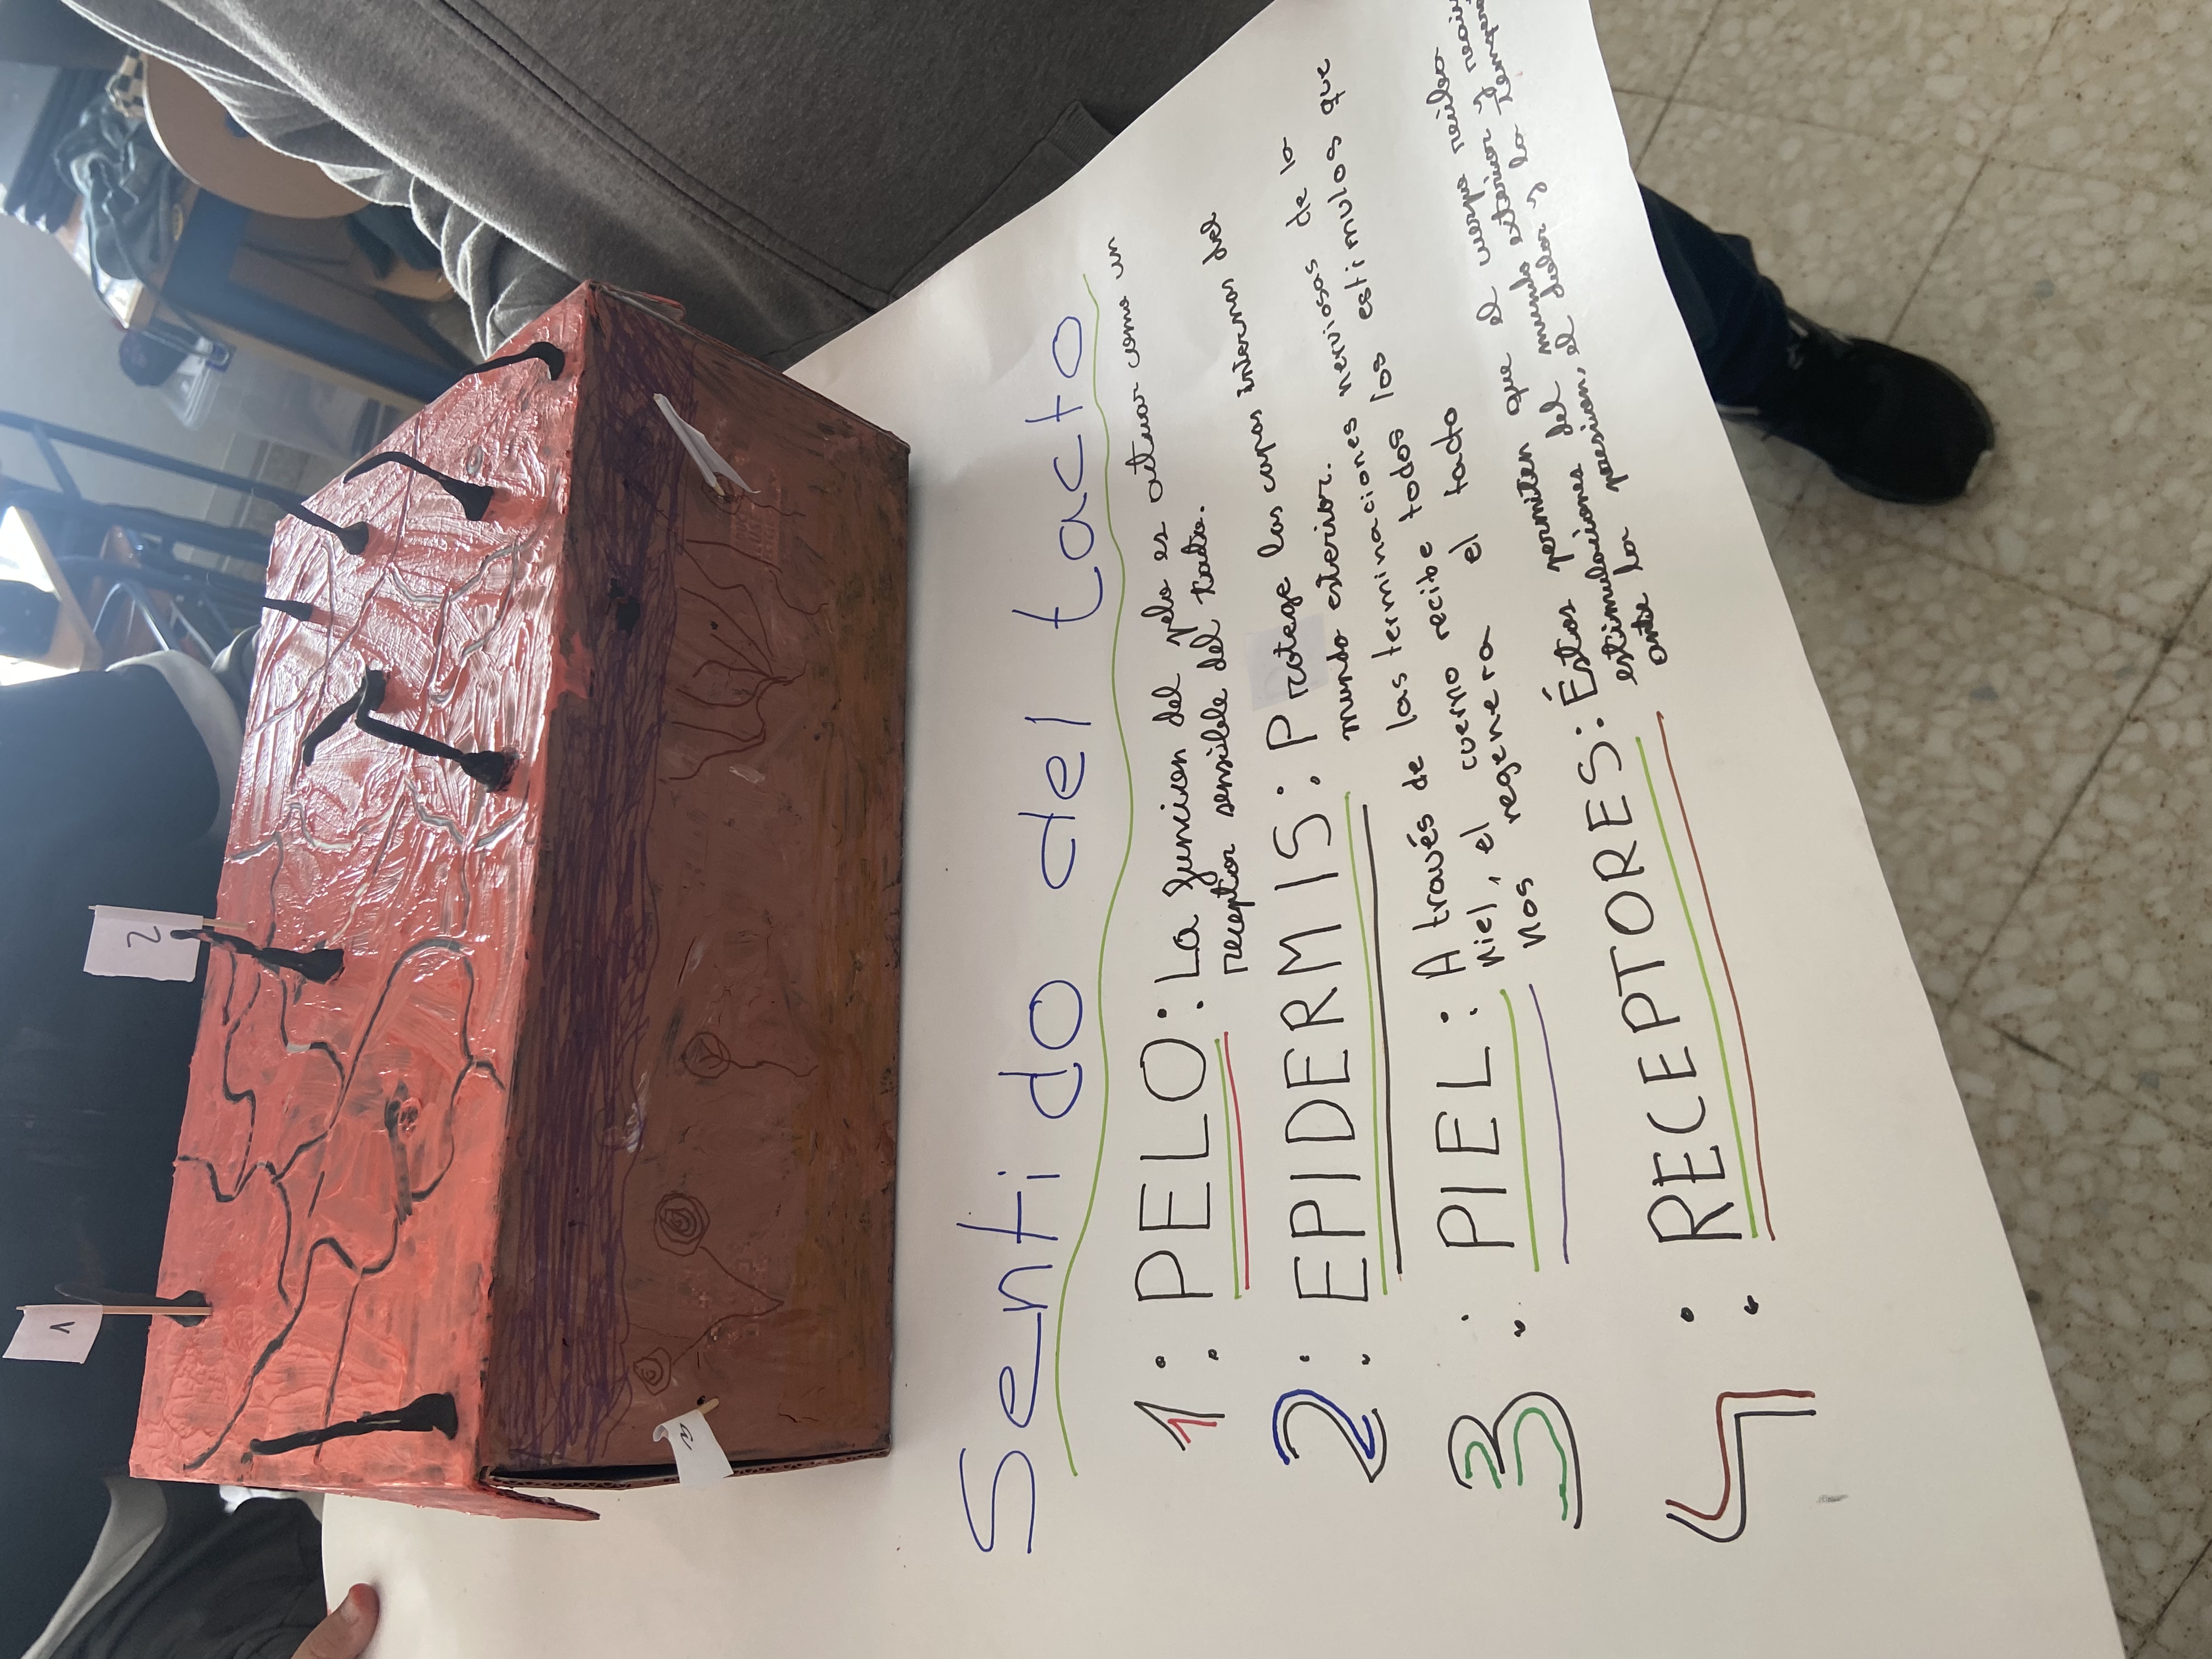 1
2
3
Sentido del tacto
1: PELO: La funcion del pelo es actuar como un
receptor sensible del tacto.
2: EPIDERMIS: Protege las capas internas del
mundo exterior.
3: PIEL: A través de las terminaciones nerviosas de la
piel, el cuerpo recibe todos los estimulos que
nos regenera el tacto
4: RECEPTORES: Éstos permiten que el cuerpo reciba
estimulaciones del mundo exterior y
ante la presion, el dolor y la